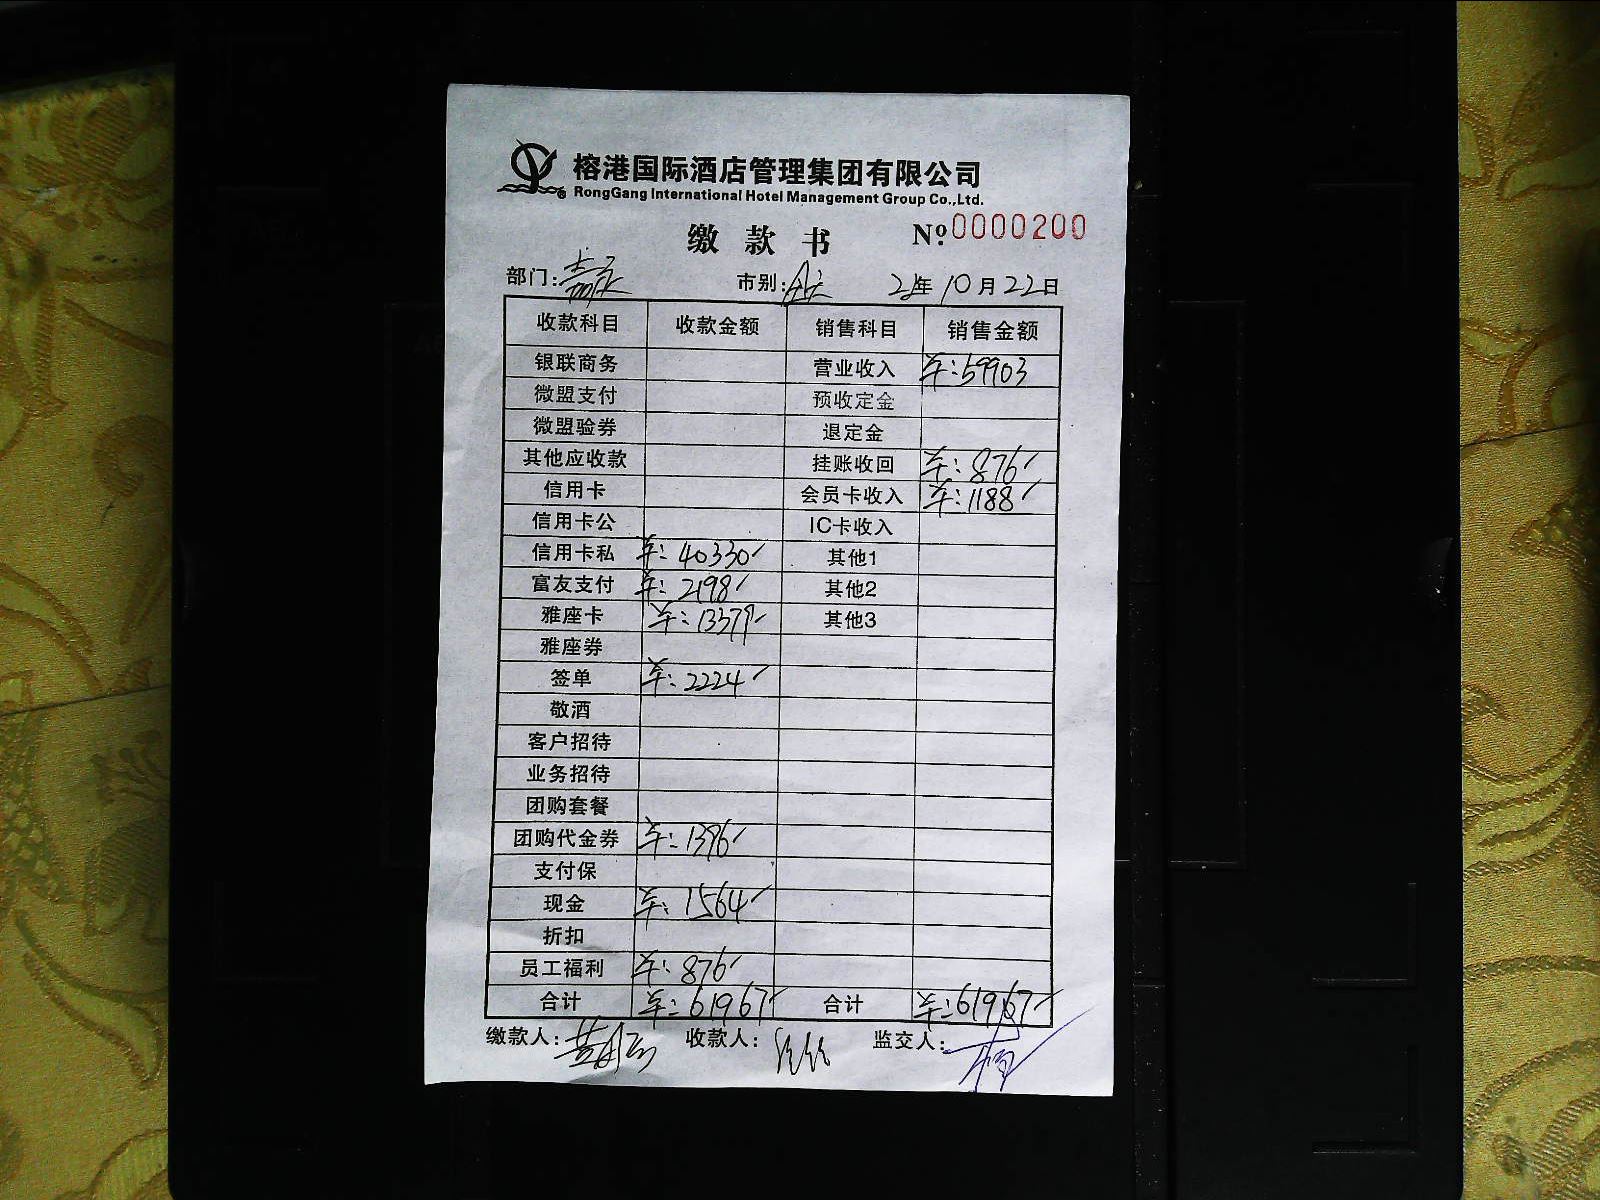 榕港国际酒店管理集团有限公司
RongGang International Hotel Management Group Co.,Ltd.
缴款书 №0000200
部门:嘉定 市别:全天 21年10月22日
收款科目 收款金额 销售科目 销售金额
银联商务 营业收入 ¥:59903
微盟支付 预收定金
微盟验券 退定金
其他应收款 挂账收回 ¥:876
信用卡 会员卡收入 ¥:1188
信用卡公 IC卡收入
信用卡私 ¥:40330 其他1
富友支付 ¥:2198 其他2
雅座卡 ¥:13379 其他3
雅座券
签单 ¥:2224
敬酒
客户招待
业务招待
团购套餐
团购代金券 ¥:1396
支付保
现金 ¥:1564
折扣
员工福利 ¥:876
合计 ¥:61967 合计 ¥:61967
缴款人: 收款人: 监交人: